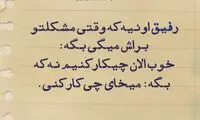 رفیق اونیه که وقتی مشکلتو
براش میگی بگه:
خوب الان چیکار کنیم نه که
بگه: میخای چی کار کنی.